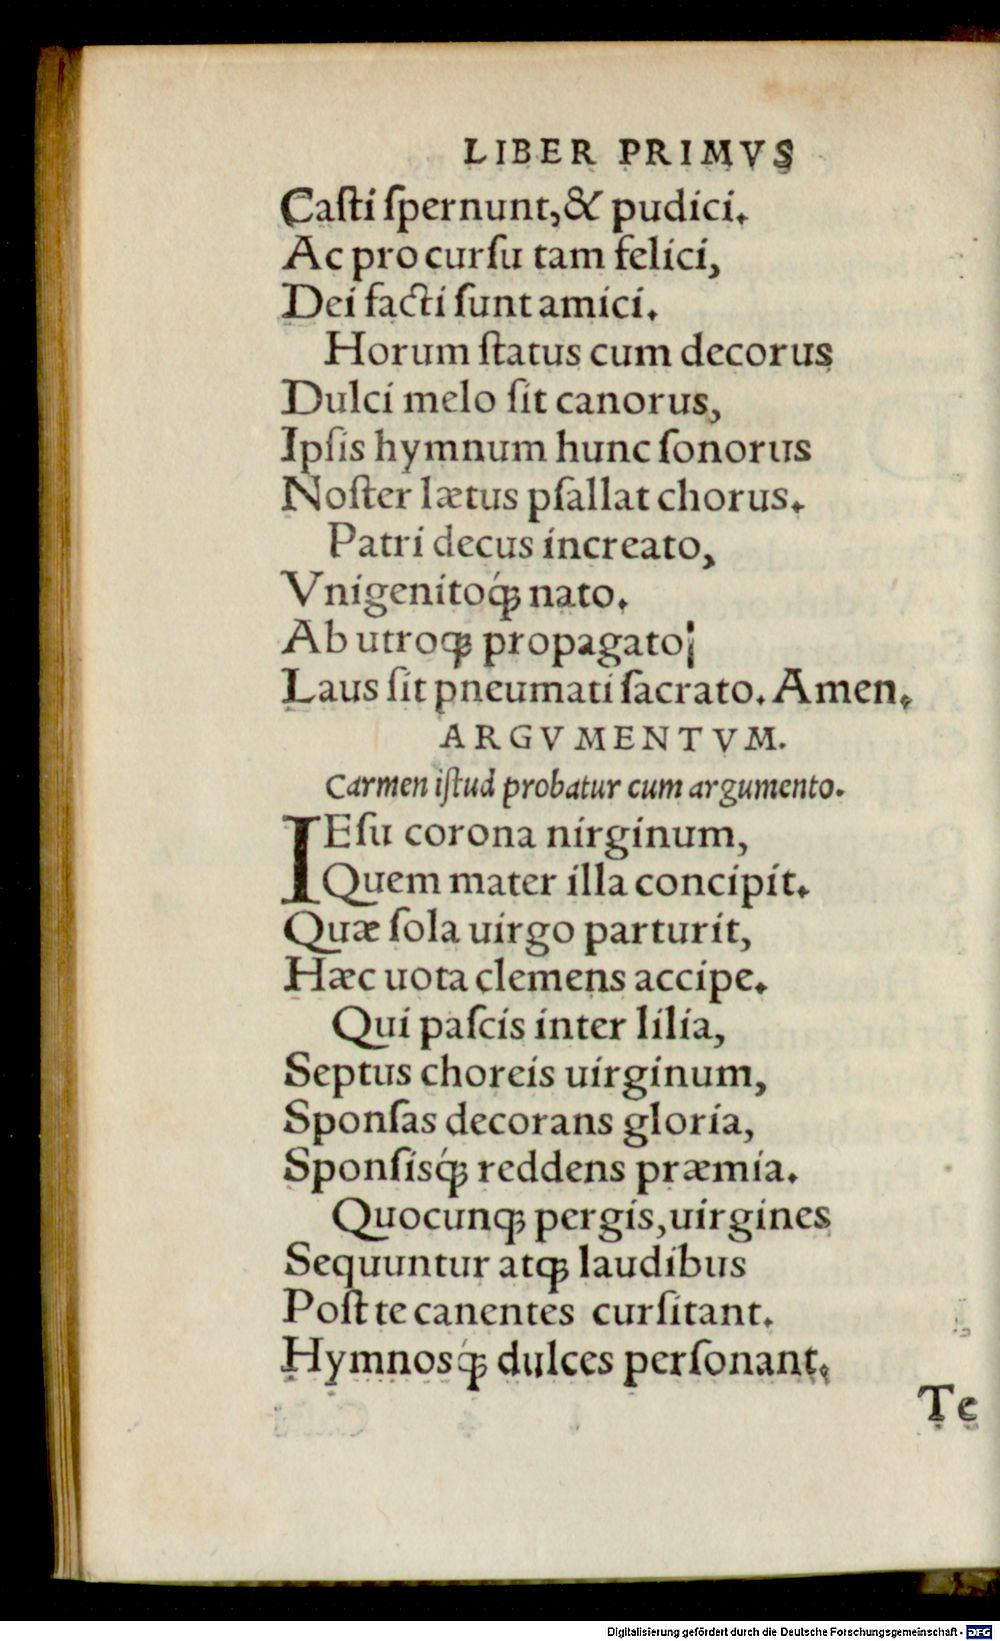 LIBER PRIMVS
Caſti ſpernunt,& pudici.
Ac pro curſu tam felici,
Dei facti ſunt amici.
Horum ſtatus cum decorus
Dulci melo ſit canorus,
Ipſis hymnum hunc ſonorus
Noſter lætus pſallat chorus.
Patri decus increato,
Vnigenitoq́ꝫ nato.
Ab utroqꝫ propagato:
Laus ſit pneumati ſacrato. Amen.
ARGVMENTVM.
Carmen iſtud probatur cum argumento.
IEſu corona nirginum,
Quem mater illa concipit.
Quæ ſola uirgo parturit,
Hæc uota clemens accipe.
Qui paſcis inter lilia,
Septus choreis uirginum,
Sponſas decorans gloria,
Sponſisq́ꝫ reddens præmia.
Quocunqꝫ pergis,uirgines
Sequuntur atqꝫ laudibus
Poſt te canentes curſitant.
Hymnosq́ꝫ dulces perſonant.
Te
Digitalisierung gefördert durch die Deutsche Forschungsgemeinschaft - DFG